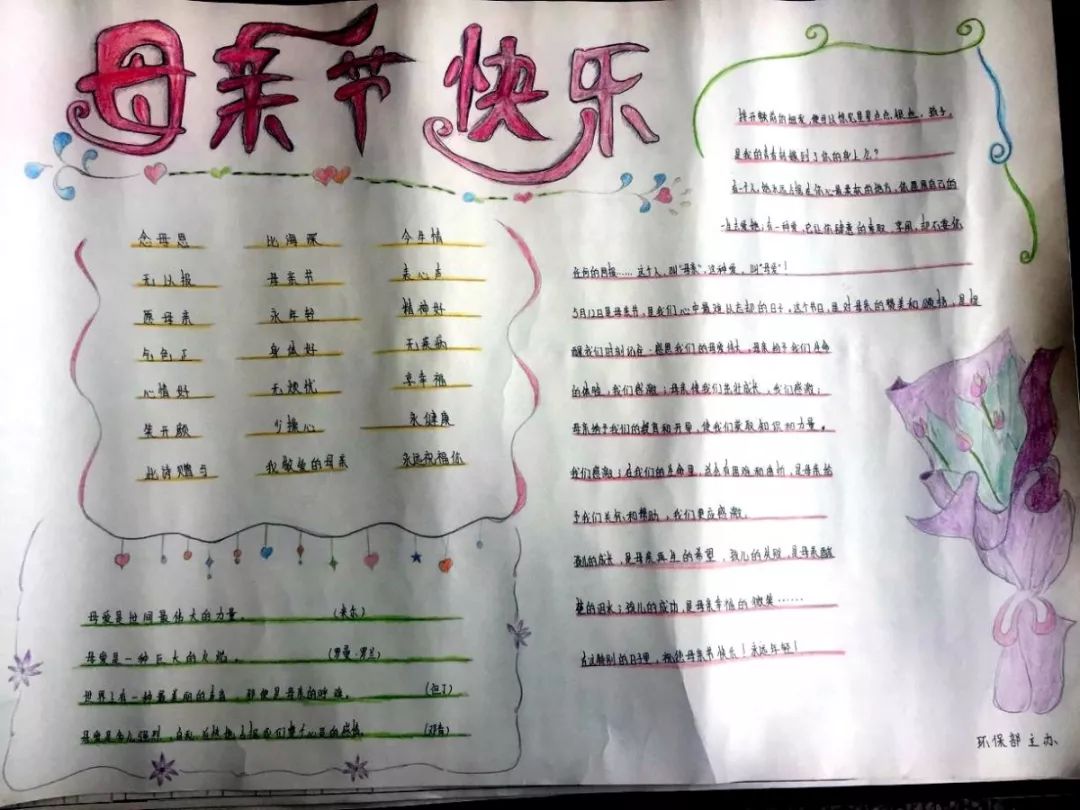 母亲节快乐
念母恩 比海深 今年情
无以报 母亲节 表心声
愿母亲 永年轻 精神好
气色正 身体好 无疾病
心情好 无烦忧 享幸福
笑开颜 少操心 永健康
此诗赠与 我敬爱的母亲 永远祝福你
母爱是世间最伟大的力量。 (米尔)
母爱是一种巨大的火焰。 (罗曼·罗兰)
世界上有一种最美丽的声音,那便是母亲的呼唤。 (但丁)
母爱是多么强烈、自私、占据我们整个心灵的感情。 (邓肯)
孩子,
是我的青春转嫁到了你的身上么?
有一个人,她永远占据在你心最柔软的地方,你愿用自己的
一生去爱她;有一种爱,它让你肆意的索取、享用,却不要你
任何的回报……这个人,叫“母亲”,这种爱,叫“母爱”!
5月12日是母亲节,是我们心中最难以忘却的日子。这个节日,是对母亲的赞美和颂扬,是提
醒我们时刻记在:感恩我们的母爱伟大,母亲给予我们生命
的体验,我们感激;母亲使我们茁壮成长,我们感激;
母亲给予我们的教育和开导,使我们获取知识和力量。
我们感激;在我们的生命里,总会有困难和曲折,是母亲给
予我们关怀和帮助,我们更应感激。
孩儿的成长,是母亲两年的希望,孩儿的失败,是母亲酸
楚的泪水;孩儿的成功,是母亲幸福的微笑……
在这特别的日子里,祝您母亲节快乐!永远年轻!
环保部主办